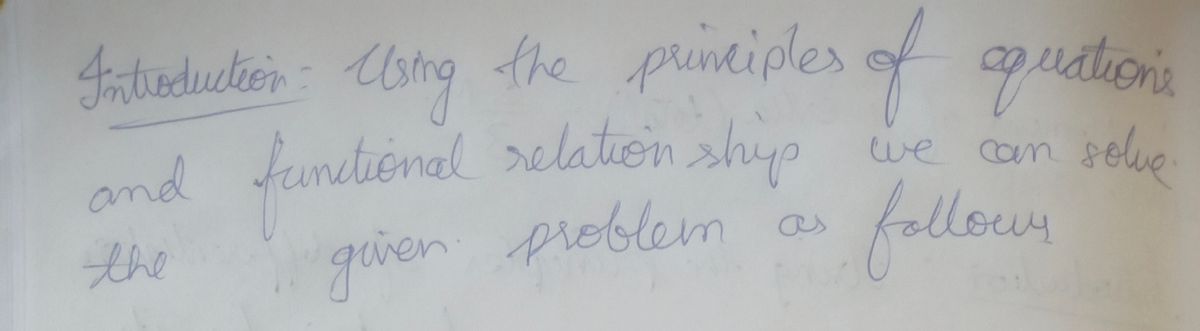 Introduction:- Using the principles of equations
and functional relation ship we can solve
the given problem as follows